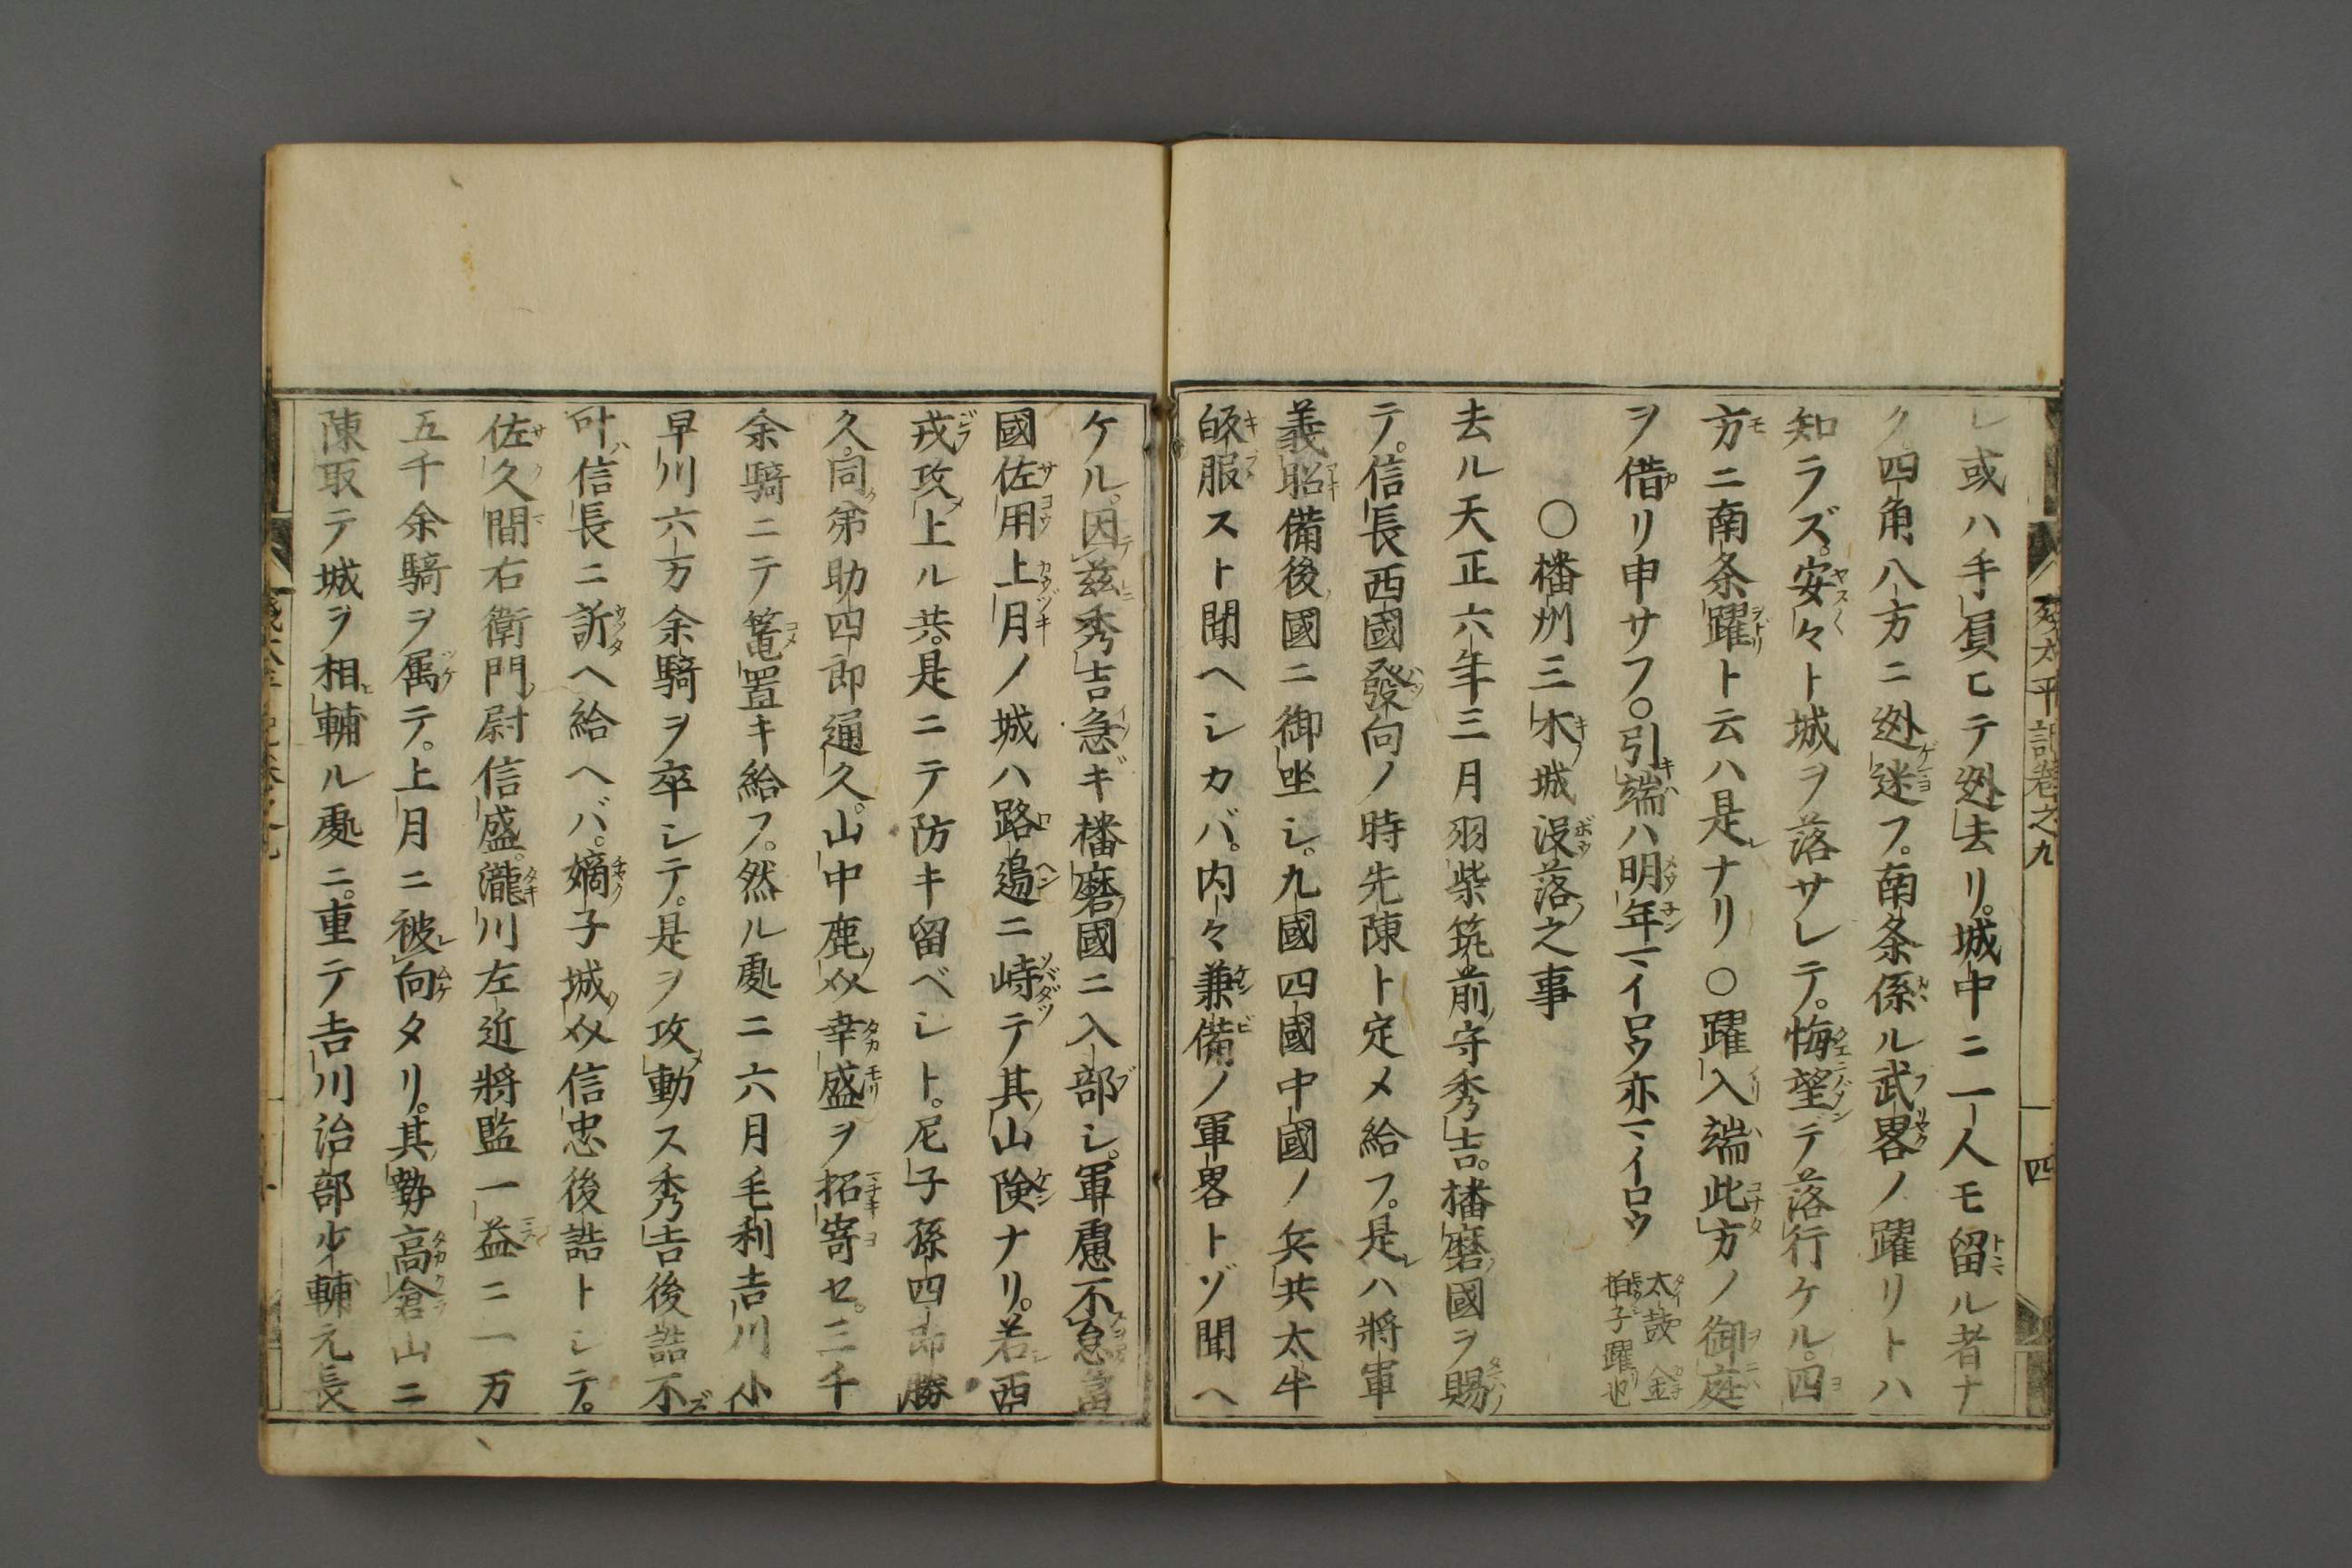 残太平記巻之九
四
レ或ハ手負ヒテ迯去リ。城中ニ一人モ留ル者ナ
ク四角八方ニ迯迷フ。南条係ル武畧ノ躍リトハ
知ラズ。安々ト城ヲ落サレテ。悔望テ落行ケル。四
方ニ南条躍ト云ハ是ナリ○躍入端此方ノ御庭
ヲ借リ申サフ。○引端ハ明年マイロウ亦マイロウ
太鼓金
拍子躍也
○播州三木城没落之事
去ル天正六年三月羽柴筑前守秀吉。播磨國ヲ賜
テ。信長西國發向ノ時先陳ト定メ給フ。是ハ將軍
義昭備後國ニ御坐シ。九國四國中國ノ兵共太半
皈服スト聞ヘシカバ。内々兼備ノ軍畧トゾ聞ヘ
ケル。因茲秀吉急ギ播磨國ニ入部シ。軍慮不怠當
國佐用上月ノ城ハ路邉ニ峙テ其山険ナリ。若西
戎攻上ル共。是ニテ防キ留ベシト。尼子孫四郎勝
久。同弟助四郎通久。山中鹿之助幸盛ヲ招寄セ。三千
余騎ニテ篭置キ給フ。然ル處ニ六月毛利吉川小
早川六万余騎ヲ卒シテ。是ヲ攻動ス秀吉後詰不
叶信長ニ訴ヘ給ヘバ。嫡子城之介信忠後詰トシテ。
佐久間右衛門尉信盛。瀧川左近將監一益ニ一万
五千余騎ヲ属テ。上月ニ被向タリ。其勢高倉山ニ
陳取テ城ヲ相輔ル處ニ。重テ吉川治部少輔元長